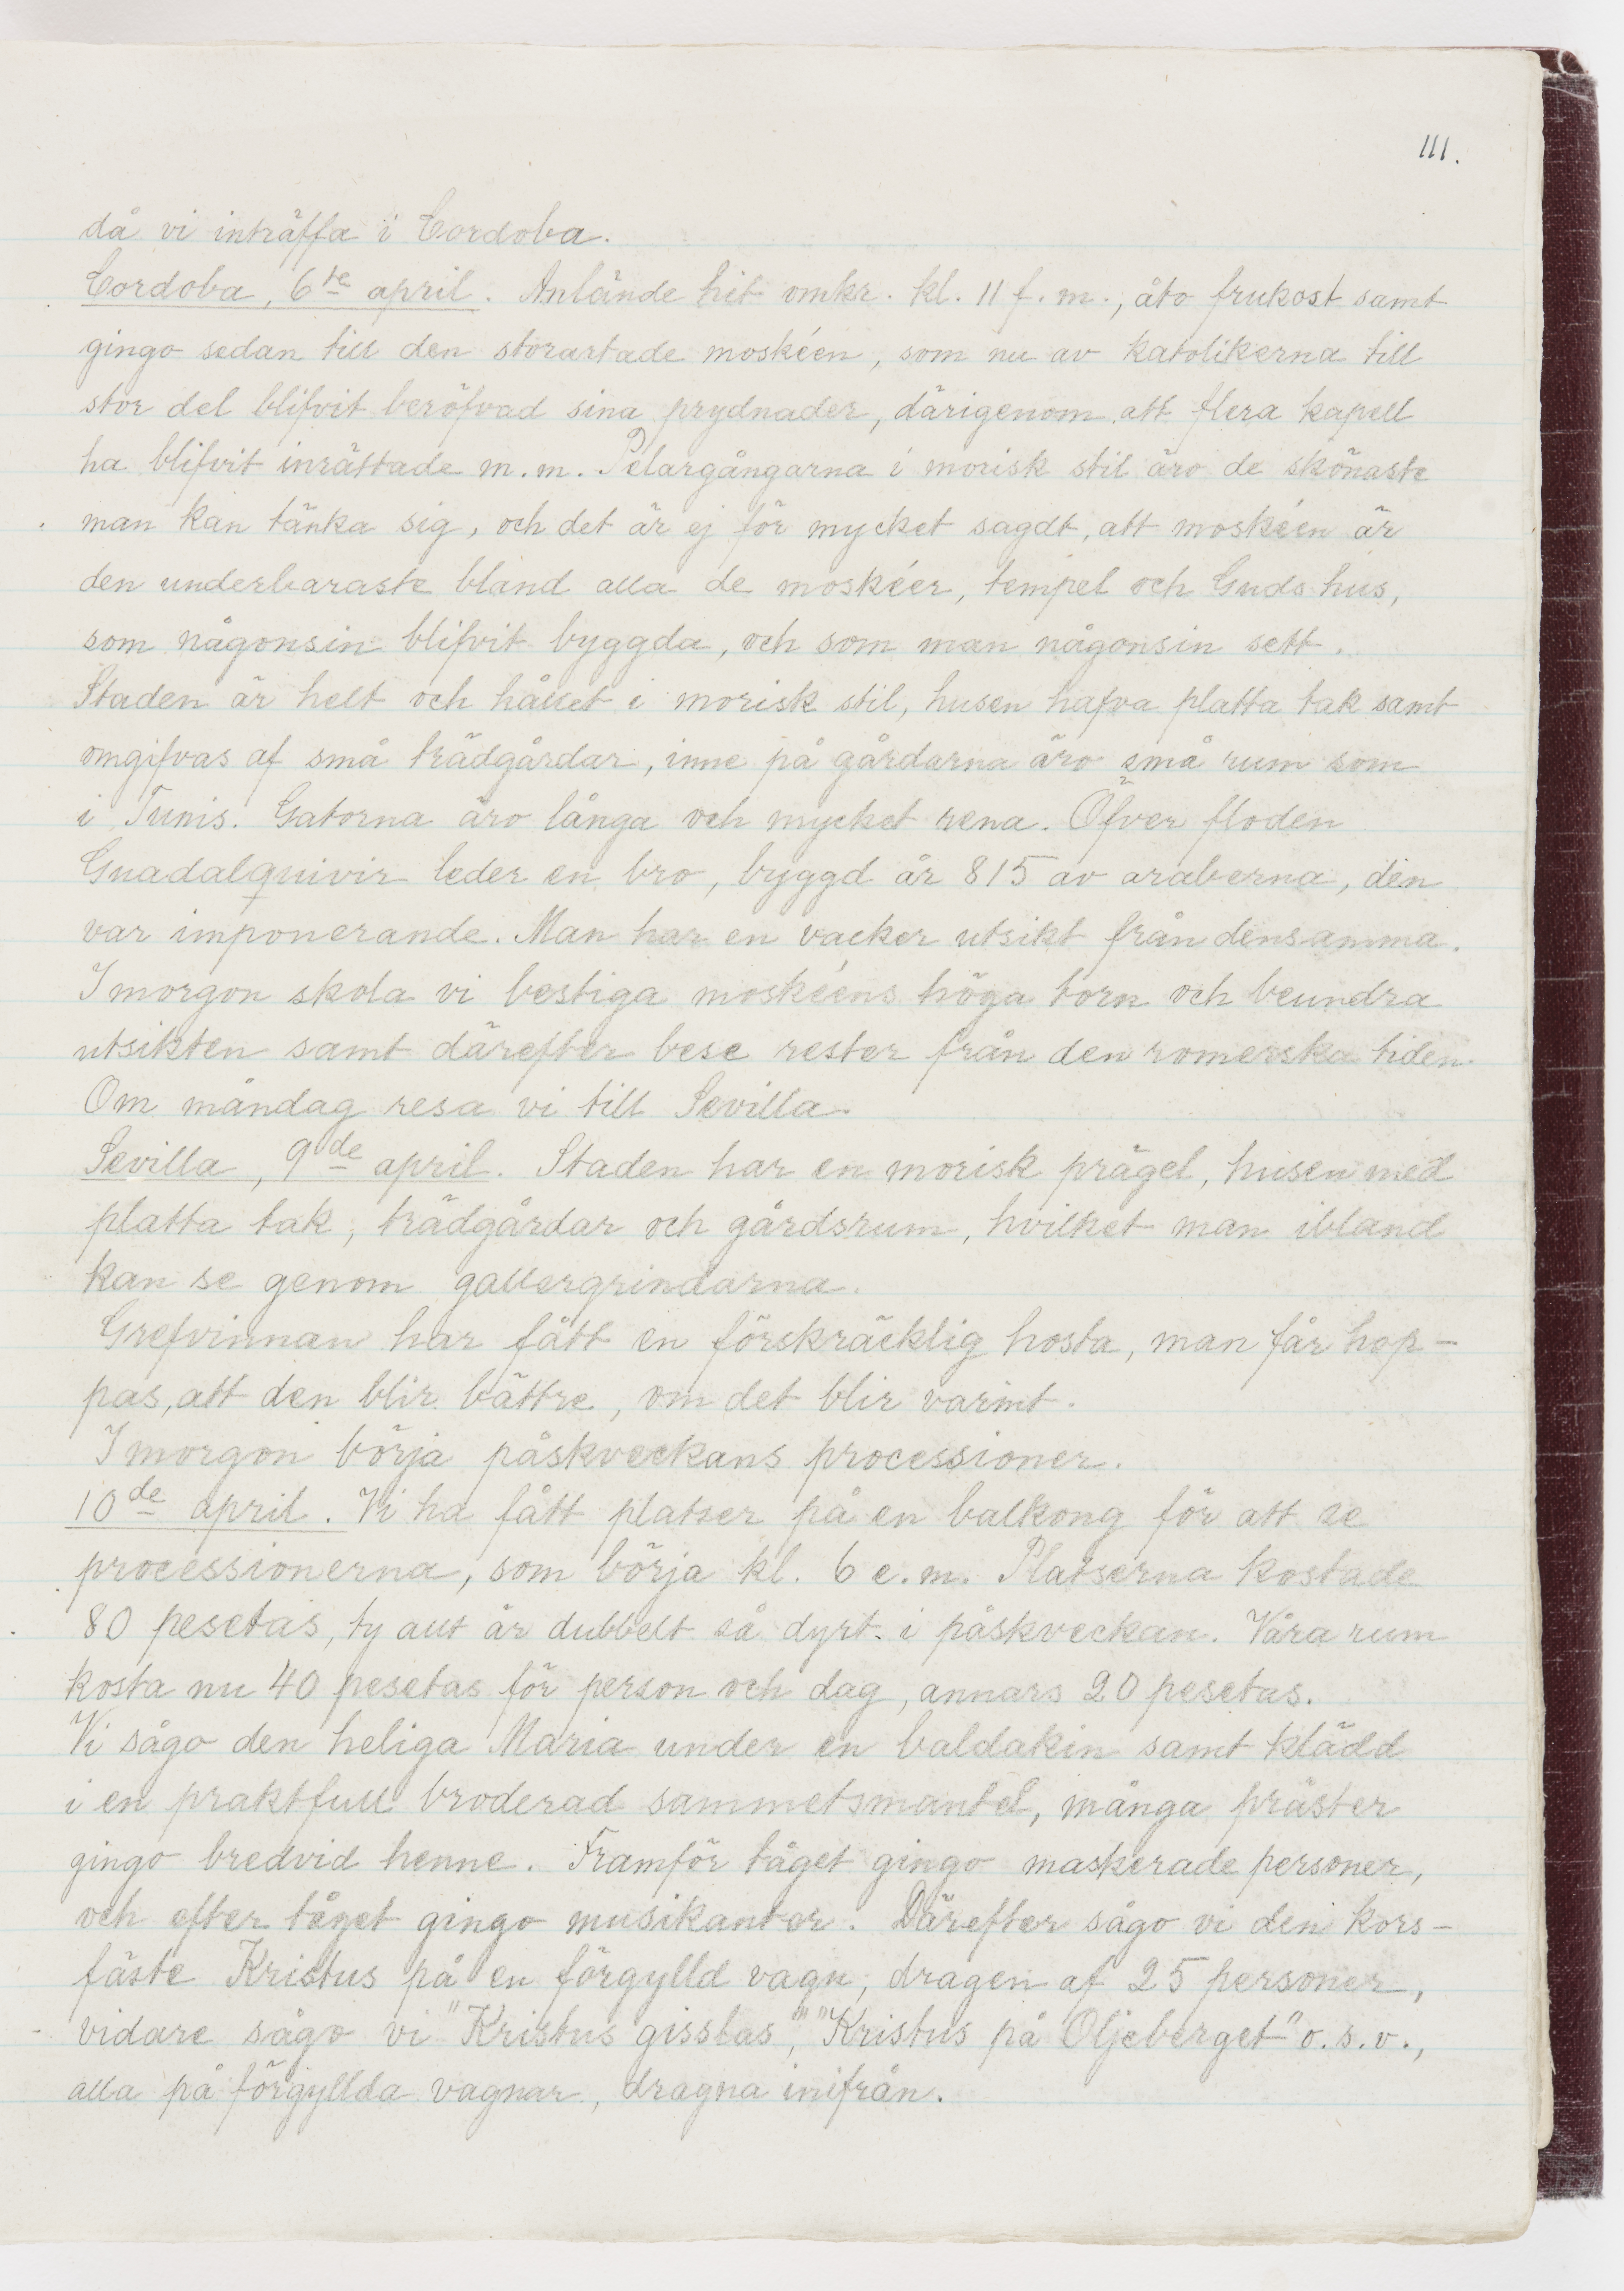 111.
då vi inträffa i Cordoba.
Cordoba, 6te april. Anlände hit omkr. kl. 11 f.m., åto frukost samt
gingo sedan till den storartade moskéen, som nu av katolikerna till
stor del blifvit beröfvad sina prydnader, därigenom att flera kapell
ha blifvit inrättade m.m. Pelargångarna i morisk stil äro de skönaste
man kan tänka sig, och det är ej för mycket sagdt, att moskéen är
den underbaraste bland alla de moskéer, tempel och Guds hus,
som någonsin blifvit byggda, och som man någonsin sett.
Staden är helt och hållet i morisk stil, husen hafva platta tak samt
omgifvas af små trädgårdar, inne på gårdarna äro små rum som
i Tunis. Gatorna äro långa och mycket rena. Öfver floden
Guadalquivir leder en bro, byggd år 815 av araberna, den
var imponerande. Man har en vacker utsikt från densamma.
I morgon skola vi bestiga moskéens höga torn och beundra
utsikten samt därefter bese rester från den romerska tiden.
Om måndag resa vi till Sevilla.
Sevilla, 9de april. Staden har en morisk prägel, husen med
platta tak, trädgårdar och gårdsrum, hvilket man ibland
kan se genom gallergrindarna.
Grefvinnan har fått en förskräcklig hosta, man får hop-
pas, att den blir bättre, om det blir varmt.
I morgon börja påskveckans processioner.
10de april. Vi ha fått platser på en balkong för att se
processionerna, som börja kl. 6 e.m. Platserna kostade
80 pesetas, ty allt är dubbelt så dyrt i påskveckan. Våra rum
kosta nu 40 pesetas för person och dag, annars 20 pesetas.
Vi sågo den heliga Maria under en baldakin samt klädd
i en praktfull broderad sammetsmantel, många präster
gingo bredvid henne. Framför tåget gingo maskerade personer,
och efter tåget gingo musikanter. Därefter sågo vi den kors-
fäste Kristus på en förgylld vagn, dragen af 25 personer,
vidare sågo vi "Kristus gisslas", "Kristus på Oljeberget" o.s.v.,
alla på förgyllda vagnar, dragna inifrån.